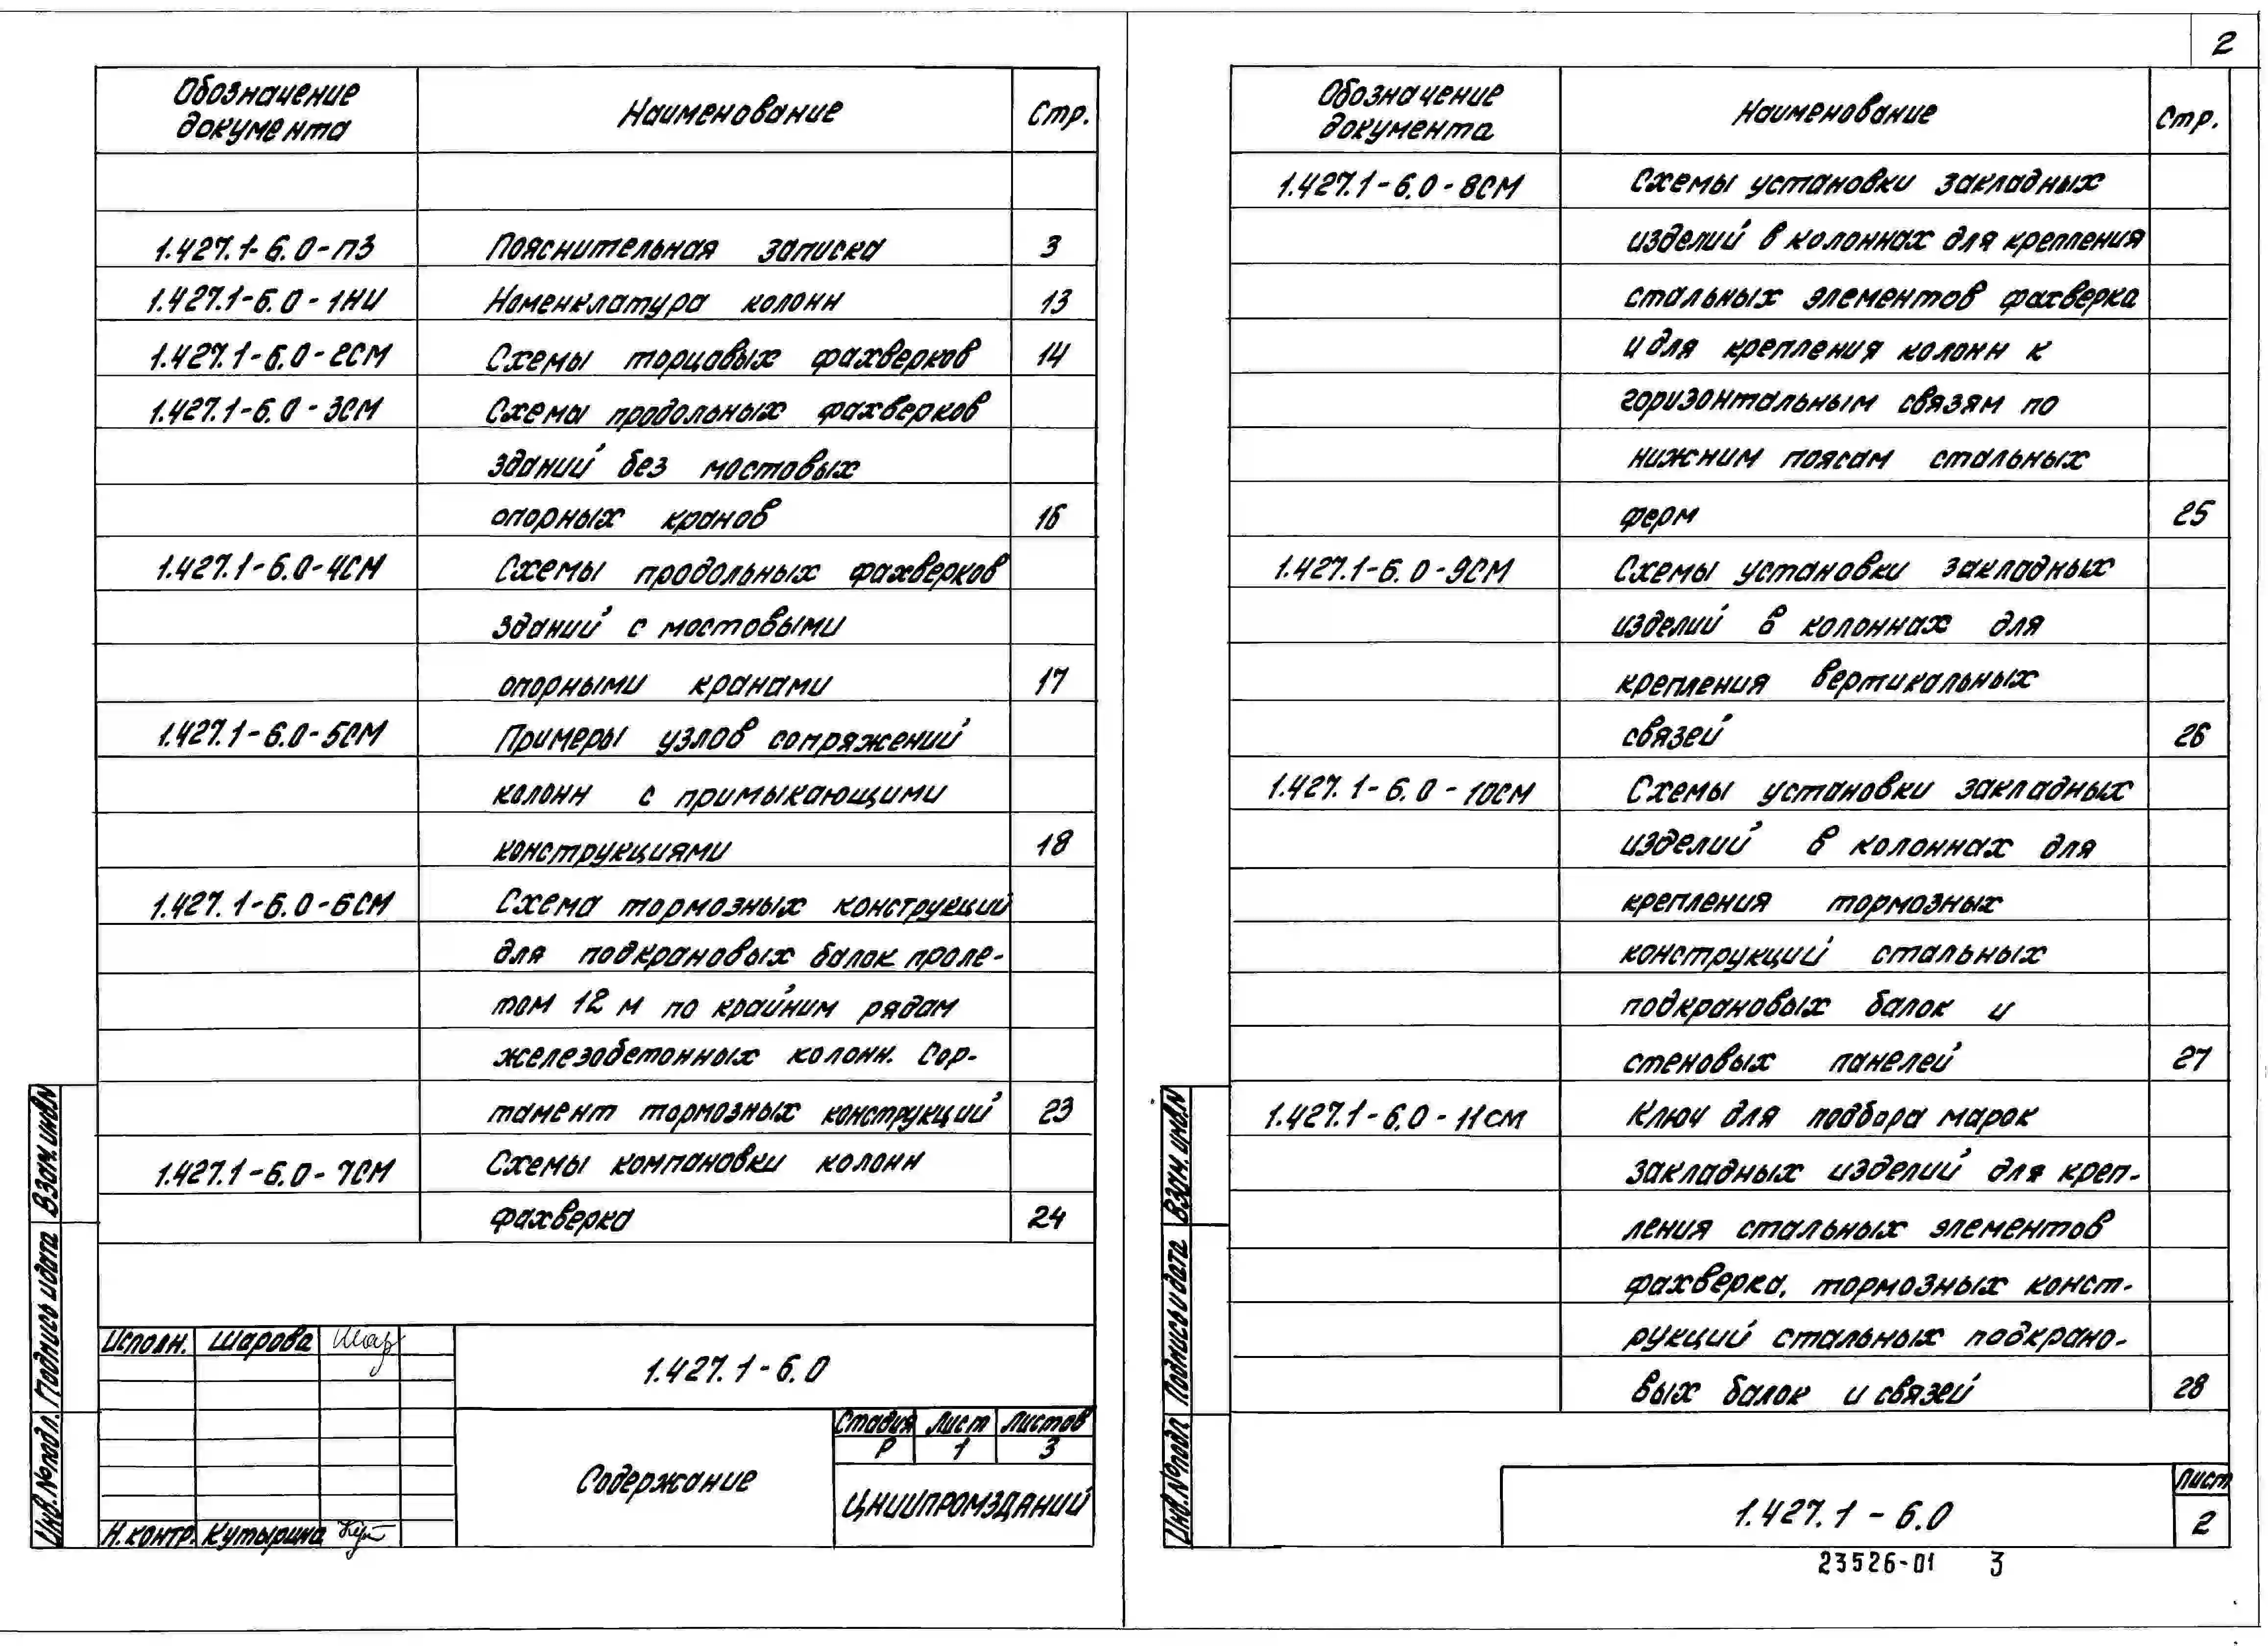 2
Обозначение документа Наименование Стр.
1.427.1-6.0-ПЗ Пояснительная записка 3
1.427.1-6.0-1НИ Номенклатура колонн 13
1.427.1-6.0-2СМ Схемы торцовых фахверков 14
1.427.1-6.0-3СМ Схемы продольных фахверков
зданий без мостовых
опорных кранов 16
1.427.1-6.0-4СМ Схемы продольных фахверков
зданий с мостовыми
опорными кранами 17
1.427.1-6.0-5СМ Примеры узлов сопряжений
колонн с примыкающими
конструкциями 18
1.427.1-6.0-6СМ Схема тормозных конструкций
для подкрановых балок проле-
том 12 м по крайним рядам
железобетонных колонн. Сор-
тамент тормозных конструкций 23
1.427.1-6.0-7СМ Схемы компановки колонн
фахверка 24
Исполн. Шарова Шар
1.427.1-6.0
Стадия Лист Листов
Р 1 3
Содержание
ЦНИИПРОМЗДАНИЙ
Н.контр. Кутырина Кут
Инв.№подл. Подпись и дата Взам.инв.N
Обозначение документа Наименование Стр.
1.427.1-6.0-8СМ Схемы установки закладных
изделий в колоннах для крепления
стальных элементов фахверка
и для крепления колонн к
горизонтальным связям по
нижним поясам стальных
ферм 25
1.427.1-6.0-9СМ Схемы установки закладных
изделий в колоннах для
крепления вертикальных
связей 26
1.427.1-6.0-10СМ Схемы установки закладных
изделий в колоннах для
крепления тормозных
конструкций стальных
подкрановых балок и
стеновых панелей 27
1.427.1-6.0-11СМ Ключ для подбора марок
закладных изделий для креп-
ления стальных элементов
фахверка, тормозных конст-
рукций стальных подкрано-
вых балок и связей 28
Инв.№подл Подпись и дата Взам.инв.N
1.427.1-6.0
Лист
2
23526-01 3